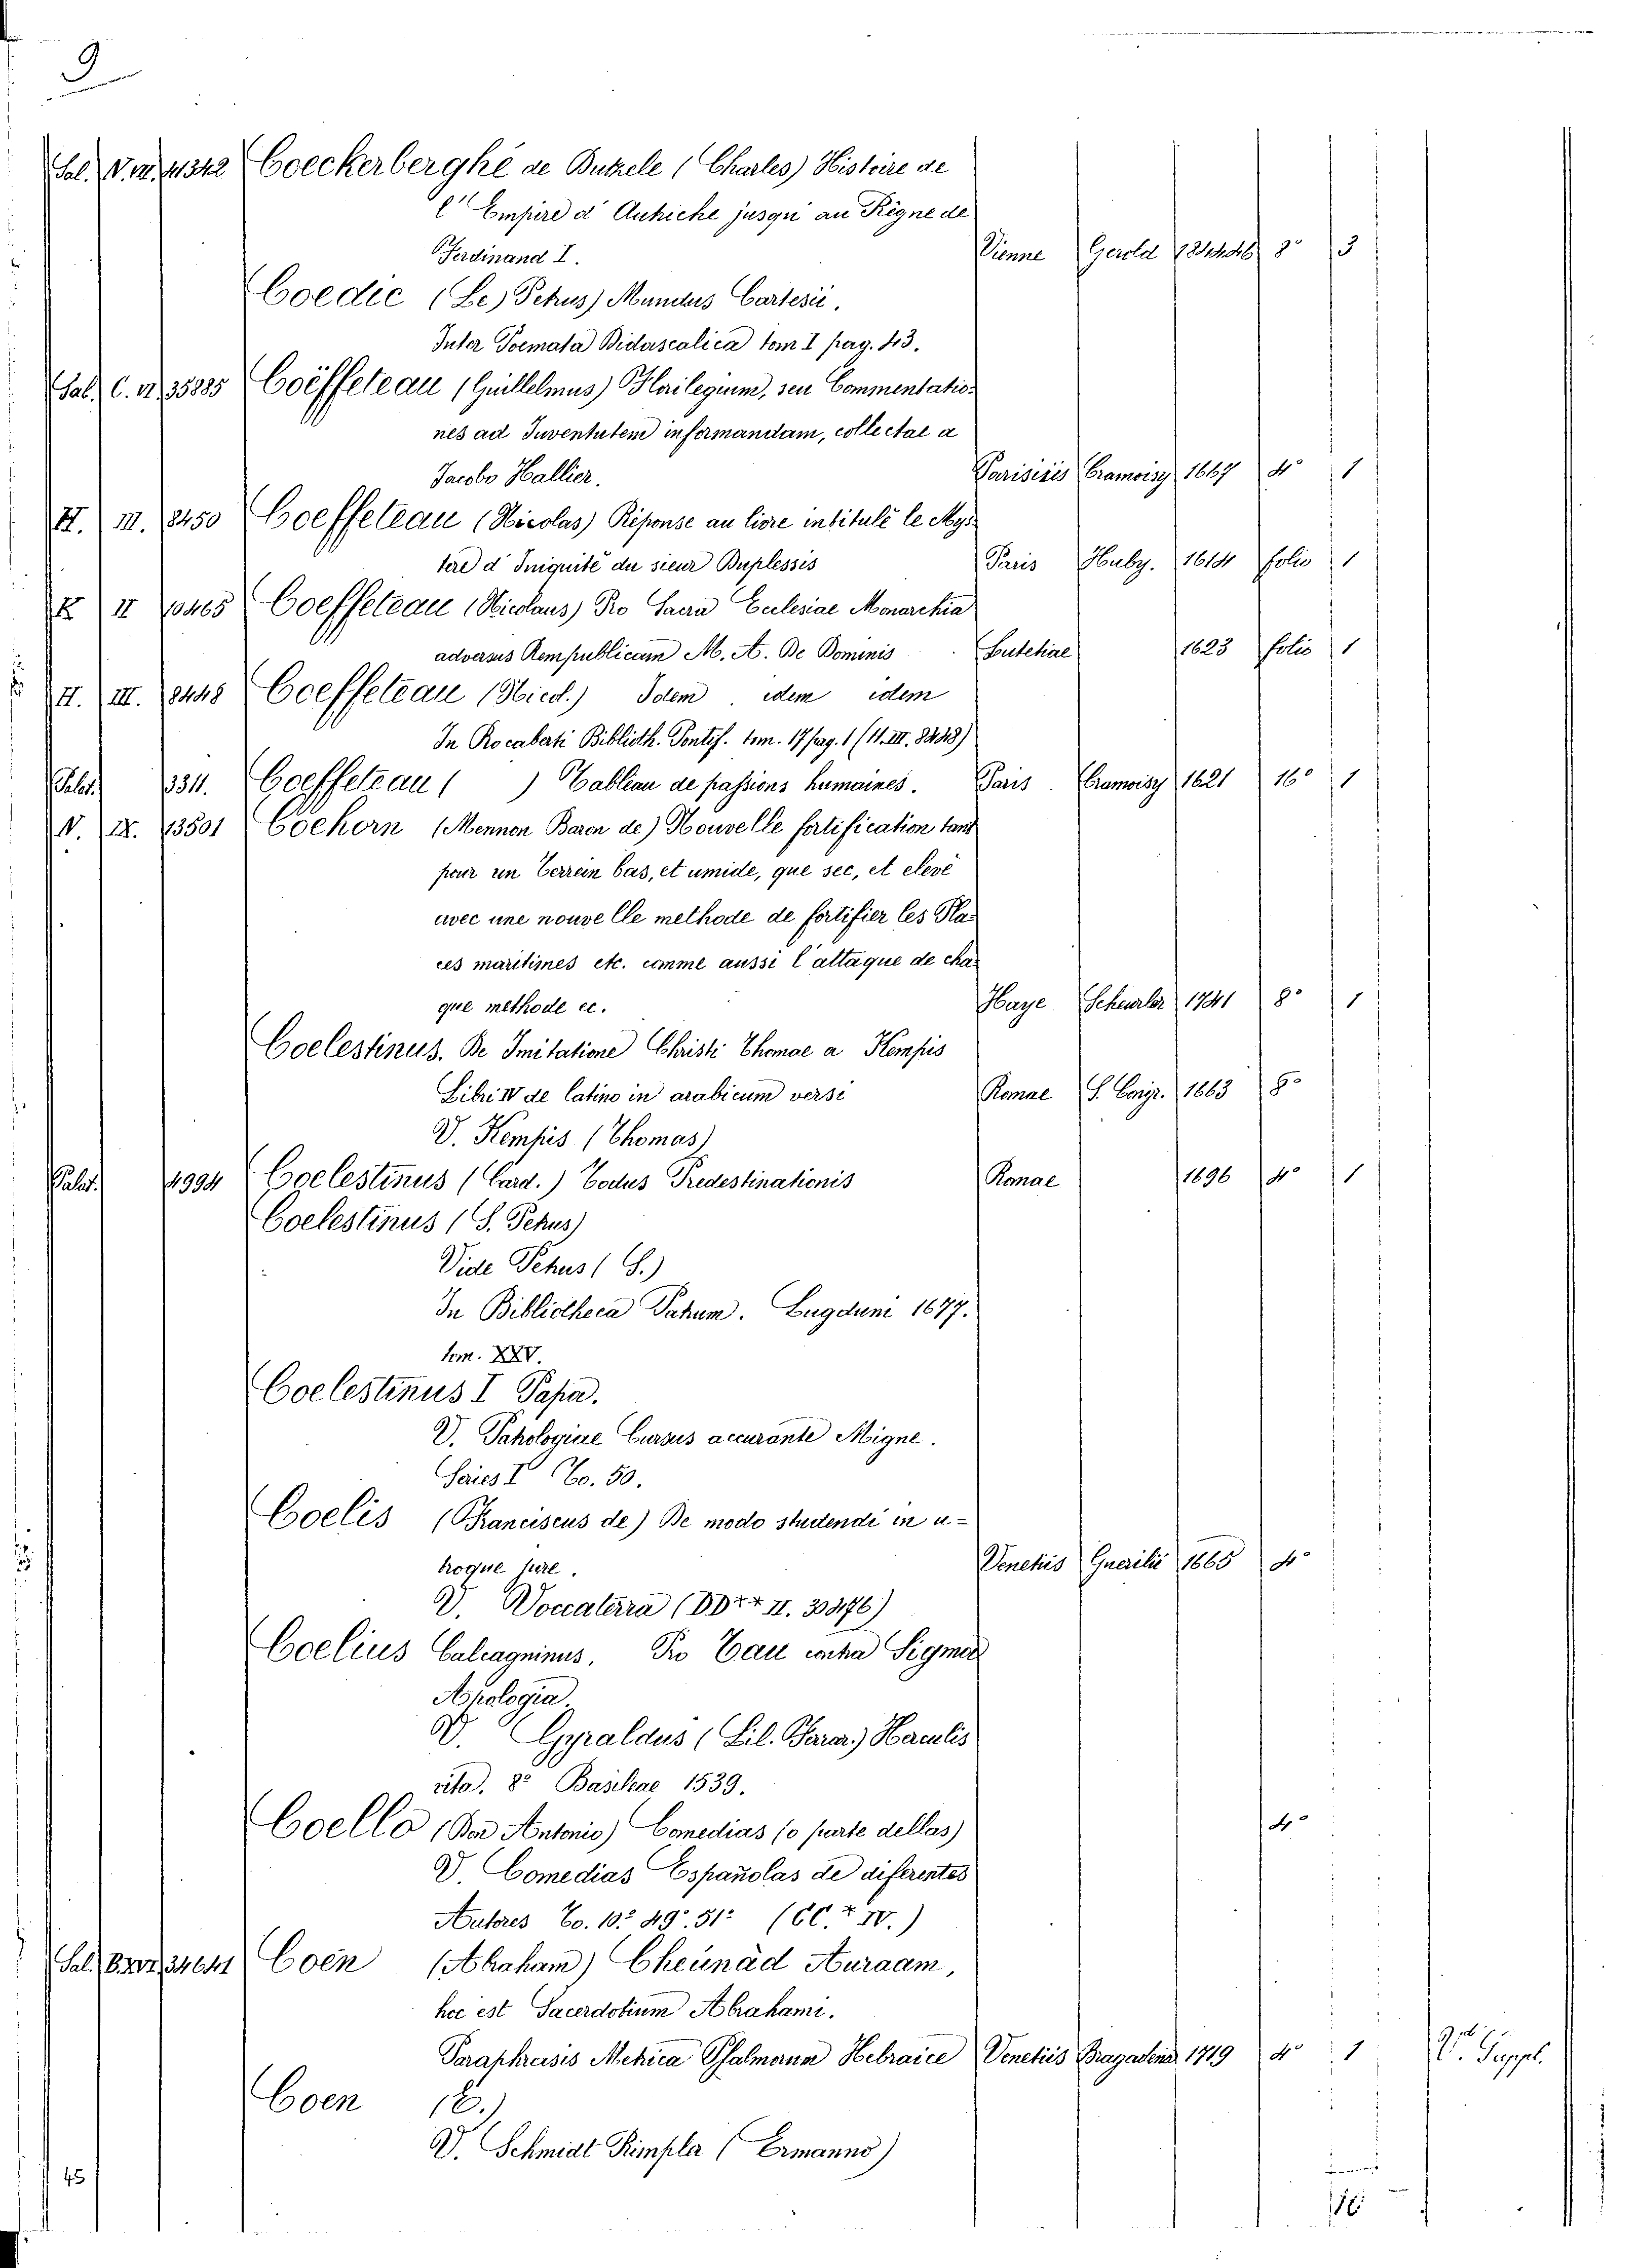 9
Sal. V. 11342 Coeckerberghe de Butzele (Charles) Histoire de
l'Empire d' Autriche jusqu' au Règne de
Ferdinand I. Vienne Gerold 8° 3
Coedic (Le) Petrus) Mundus Cartesii.
Inter Poemata Didascalica tom I pag. 43.
Sal. C. VI. 35885 Coëffeteau (Guillelmus) Florilegium, seu Commentatio-
nes ad Juventutem informandam, collectae a
Jacobo Hallier. Parisiis Cramoisy 1667 4° 1
H. III. 8450 Coeffeteau (Nicolas) Réponse au livre intitulé le Mys-
tere d' Iniquité du sieur Duplessis Paris Huby. 1614 folio 1
K II 10465 Coeffeteau (Nicolaus) Pro Sacra Eclesiae Monarchia
adversus Rempublicam M. A. De Dominis Lutetiae 1623 folio 1
H. III. 8448 Coeffeteau (Nicol.) Idem idem idem
In Rocaberti Biblioth. Pontif. tom. 17 pag. 1 (H. III. 8448)
Palat. 3311. Coeffeteau ( ) Tableau de passions humaines. Paris Cramoisy 1621 16° 1
V. IX. 13501 Coehorn (Mennon Baron de) Nouvelle fortification tant
pour un Terrein bas, et umide, que sec, et elevé
avec une nouvelle methode de fortifier les Pla-
ces maritimes etc. comme aussi l'attaque de cha-
que methode ec. Haye Scheurler 1741 8° 1
Coelestinus. De Imitatione Christi Thomae a Kempis
Libri IV de latino in arabicum versi Romae S. Congr. 1663 8°
V. Kempis (Thomas)
Palat. 4994 Coelestinus (Card.) Nodus Predestinationis Romae 1696 4° 1
Coelestinus (S. Petrus)
Vide Petrus (S.)
In Bibliotheca Patrum. Lugduni 1677.
tom. XXV.
Coelestinus I Papa.
V. Patrologiae Cursus accurante Migne.
Series I To. 50.
Coelis (Franciscus de) De modo studendi in u-
troque jure. Venetiis Guerilii 1665 4°
V. Voccaterra (DD++ II. 30476)
Coelius Calcagninus. Pro Tau contra Sigma
Apologia.
V. Gyraldus (Lil. Ferrar.) Herculis
vita. 8° Basileae 1539.
Coello (Don Antonio) Comedias (o parte dellas) 4°
V. Comedias Españolas de diferentes
Autores To. 10° 49° 51° (CC. + IV.)
Sal. 34641 Coèn (Abraham) Cheunàd Auraam,
hoc est Sacerdotium Abrahami.
Paraphrasis Metrica Psalmorum Hebraice Venetiis Bragadena 1719 4° 1 V. Suppl.
Coen
V. Schmidt Rimpler (Ermanno)
45
16